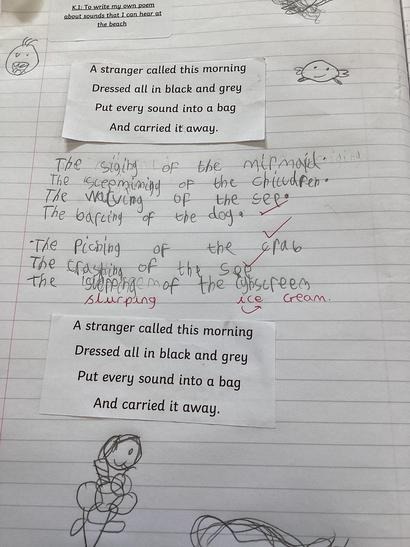 K.I: To write my own poem
about sounds that I can hear at
the beach
A stranger called this morning
Dressed all in black and grey
Put every sound into a bag
And carried it away.
The siging of the mermaid.
The of the
The of the sep.
The barcing of the dog.
The Piching of the crab
The crashing of the sep
the of the
slurping ice cream.
A stranger called this morning
Dressed all in black and grey
Put every sound into a bag
And carried it away.